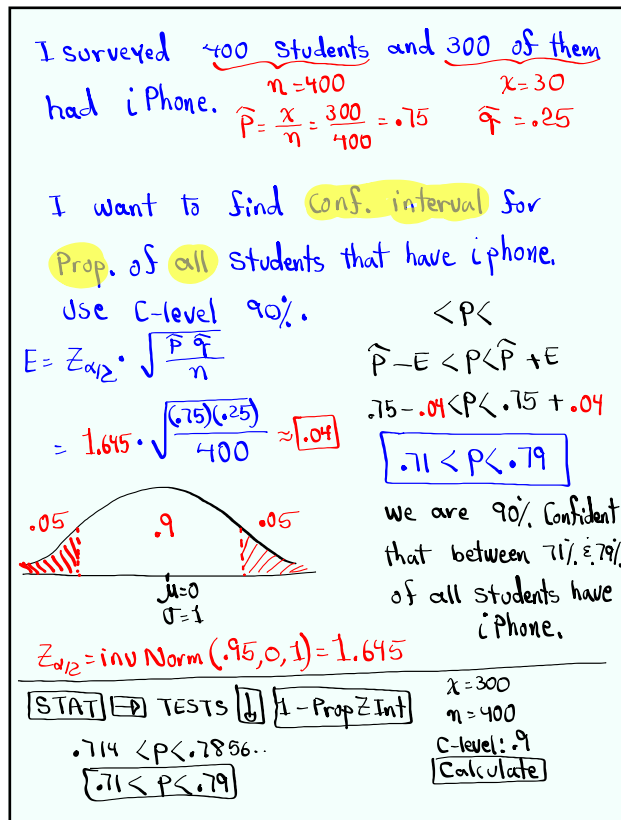 I surveyed 400 Students and 300 of them
n=400 x=30
had iPhone. p̂ = x/n = 300/400 = .75 q̂ = .25
I want to find Conf. interval for
Prop. of all Students that have iphone.
Use C-level 90%.
E = Z_α/2 · √(p̂ q̂ / n)
= 1.645 · √((.75)(.25) / 400) ≈ .04
<P<
p̂ - E < P < p̂ + E
.75 - .04 < P < .75 + .04
.71 < P < .79
.05 .9 .05
μ=0
σ=1
we are 90% Confident
that between 71% & 79%
of all Students have
iPhone.
Z_α/2 = inv Norm (.95, 0, 1) = 1.645
STAT → TESTS ↓ 1-PropZInt
.714 < P < .7856..
.71 < P < .79
x=300
n=400
C-level: .9
Calculate